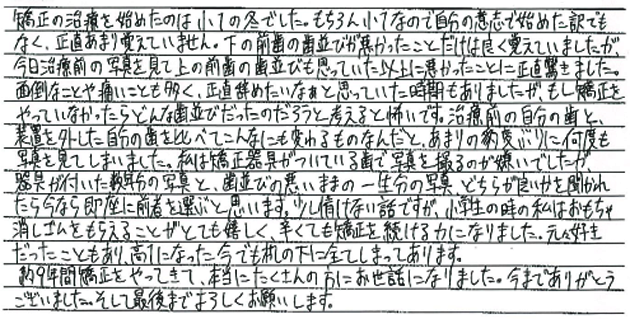 矯正の治療を始めたのは小1の冬でした。もちろん小1なので自分の意志で始めた訳でも
なく、正直あまり覚えていません。下の前歯の歯並びが悪かったことだけは良く覚えていましたが
今日治療前の写真を見て上の前歯の歯並びも思っていた以上に悪かったことに正直驚きました。
面倒なことや痛いことも多く、正直辞めたいなぁと思っていた時期もありましたが、もし矯正を
やっていなかったらどんな歯並びだったのだろうと考えると怖いです。治療前の自分の歯と、
装置を外した自分の歯を比べてこんなにも変わるものなんだと、あまりの豹変ぶりに何度も
写真を見てしまいました。私は矯正器具がついている歯で写真を撮るのが嫌いでしたが、
器具が付いた数年分の写真と、歯並びの悪いままの一生分の写真、どちらが良いかを聞かれ
たら今なら即座に前者を選ぶと思います。少し情けない話ですが、小学生の時の私はおもちゃ
消しゴムをもらえることがとても嬉しく、辛くても矯正を続ける力になりました。元々好き
だったこともあり、高1になった今でも机の下に全てしまってあります。
約9年間矯正をやってきて、本当にたくさんの方にお世話になりました。今までありがとう
ございました。そして最後までよろしくお願いします。